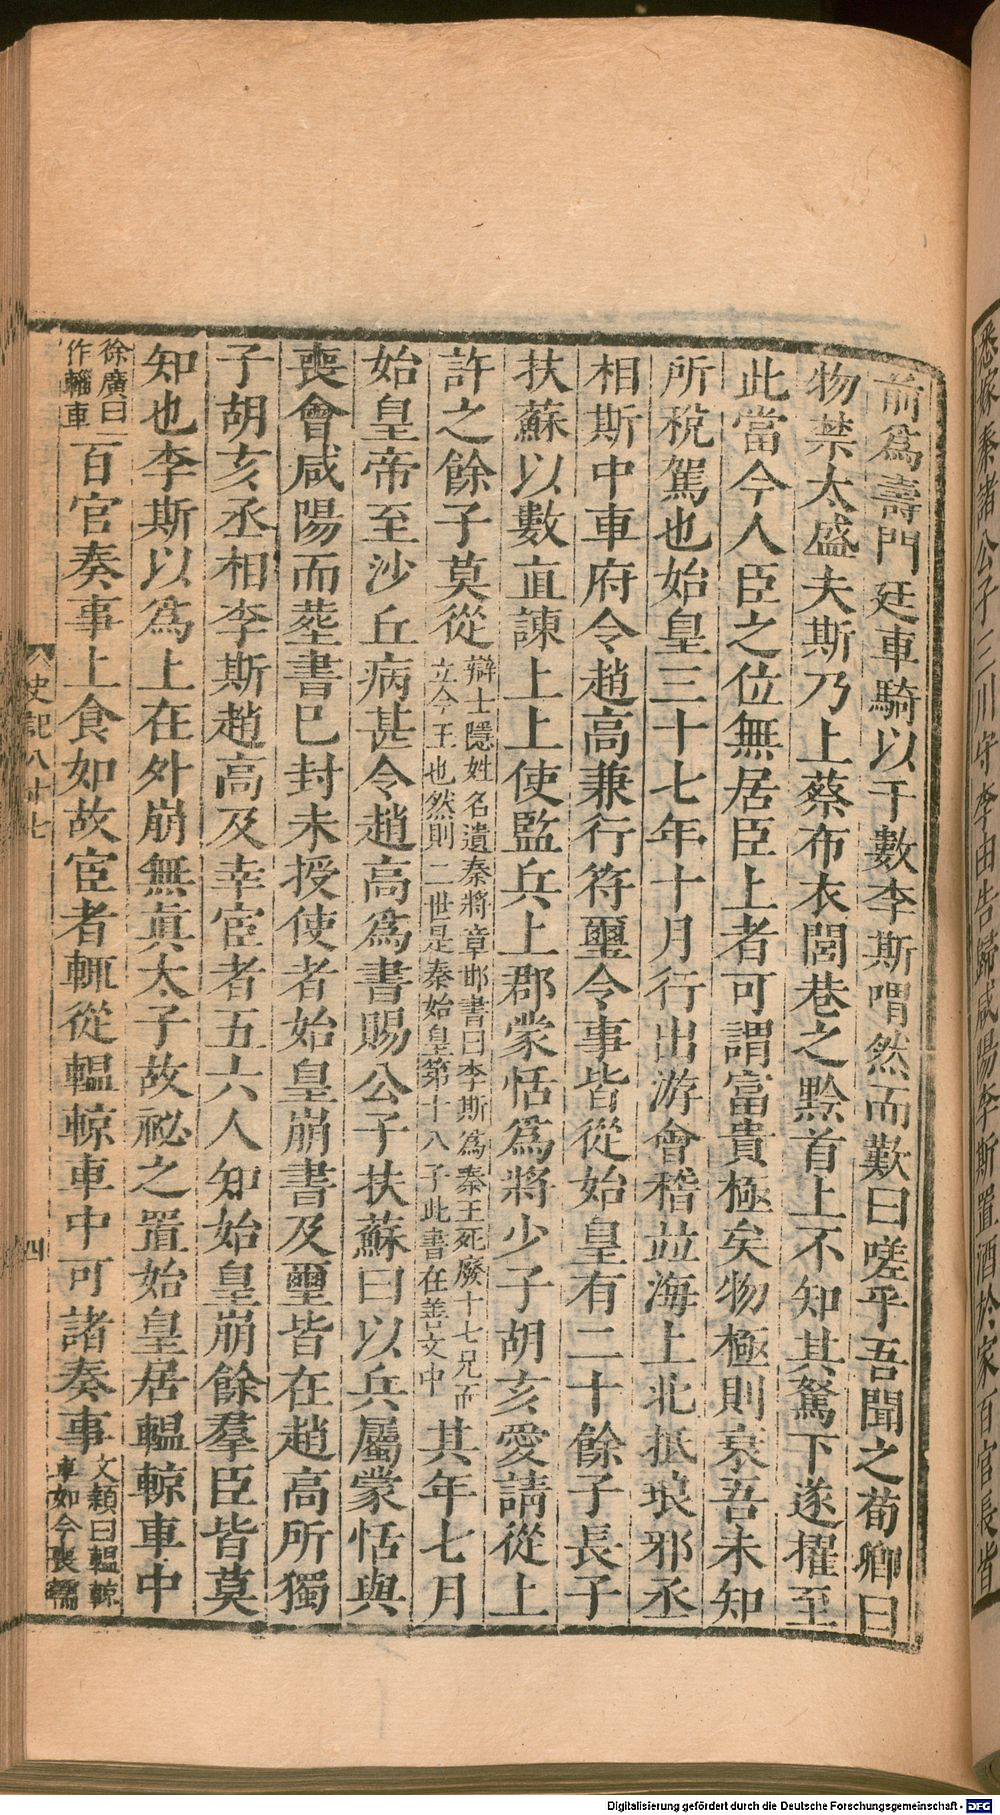 悉家奏諸公子三川守李由告歸咸陽李斯置酒於家百官長皆
前爲壽門廷車騎以千數李斯喟然而歎曰嗟乎吾聞之荀卿曰
物禁太盛夫斯乃上蔡布衣閭巷之黔首上不知其駑下遂擢至
此當今人臣之位無居臣上者可謂富貴極矣物極則衰吾未知
所稅駕也始皇三十七年十月行出游會稽並海上北抵琅邪丞
相斯中車府令趙高兼行符璽令事皆從始皇有二十餘子長子
扶蘇以數直諫上上使監兵上郡蒙恬爲將少子胡亥愛請從上
許之餘子莫從
辯士隱姓名遺秦將章邯書曰李斯爲秦王死廢十七兄而
立今王也然則二世是秦始皇第十八子此書在善文中
其年七月
始皇帝至沙丘病甚令趙高爲書賜公子扶蘇曰以兵屬蒙恬與
喪會咸陽而塟書已封未授使者始皇崩書及璽皆在趙高所獨
子胡亥丞相李斯趙高及幸宦者五六人知始皇崩餘羣臣皆莫
知也李斯以爲上在外崩無眞太子故祕之置始皇居轀輬車中
徐廣曰一
作輜車
百官奏事上食如故宦者輒從轀輬車中可諸奏事
文穎曰轀輬
車如今喪轜
史記八十七
四
Digitalisierung gefördert durch die Deutsche Forschungsgemeinschaft - DFG